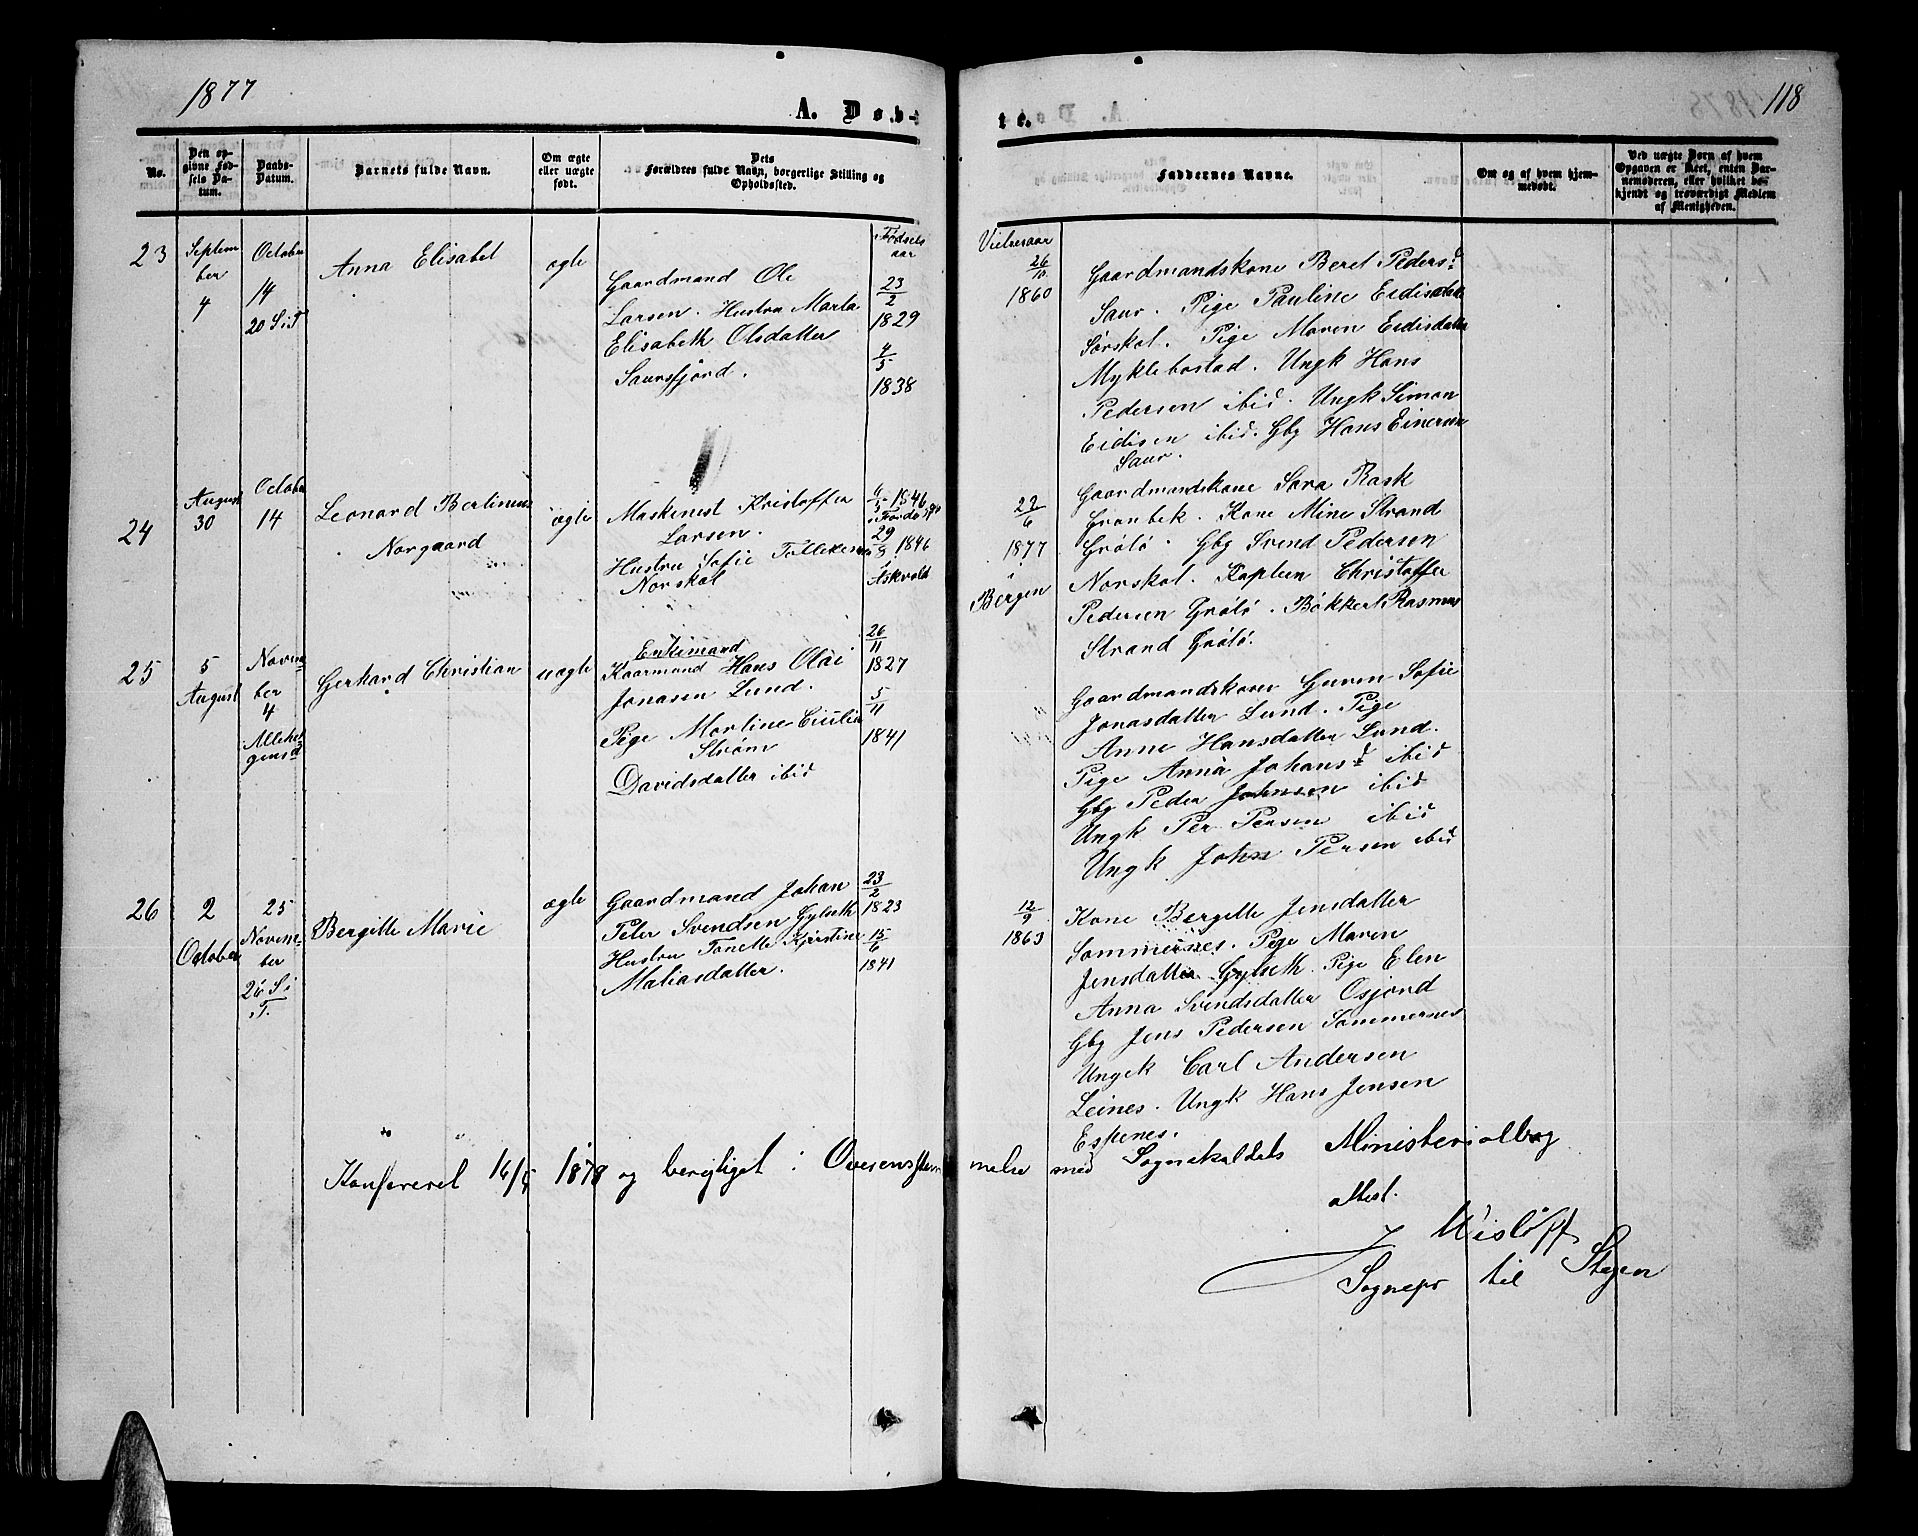 1877
118
A. Døb-
te.
No.
Den op-
givne Fød-
sels Da-
tum.
Daabs-
Datum.
Barnets fulde Navn.
Om ægte
eller uægte
født.
Dets
Forældres fulde Navn, borgerlige Stilling og
Opholdssted.
Faddernes Navne.
Om og af hvem hjem-
medøbt.
Ved uægte Børn af hvem
Opgaven er skeet, enten Bar-
nemoderen, eller hvilket be-
kjendt og troværdigt Medlem
af Menigheden.
Fødsels
aar
Vielsesaar
23
Septem
ber
4
October
14
20 S. i T
Anna Elisabet
ægte
Gaardmand Ole
Larsen. Hustru Marta
Elisabeth Olsdatter
Saursfjord.
23/2
1829
4/5
1838
26/10
1860
Gaardmandskone Beret Pedersd
Saur. Pige Pauline Eidisdatter
Sørskot. Pige Maren Eidisdatter
Myklebostad. Ungk Hans
Pedersen ibid. Ungk Simon
Eidisen ibid. Gbg Hans Einersen
Saur.
24
August
30
October
14
Leonard Berlinus
Norgaard
ægte
Maskinest Kristoffer
Larsen.
Hustru Sofie Tollekens
Norskot
1846
29/8 1846
Askvold
22/6
1877
i
Bergen
Gaardmandskone Sara Rask
Grønbek. Kone Mine Strand
Grøtø. Gbg Svend Pedersen
Norskot. Kaptein Christoffer
Pedersen Grøtø. Bøkkert Rasmus
Strand Grøtø.
25
5
August
Novem
ber
4
Allehel
gensd
Gerhard Christian
uægte
Enkemand
Kaarmand Hans Olai
Jonasen Lund.
Pige Martine Cecilia
Strøm
Davidsdatter ibid
26/11
1827
5/11
1841
Gaardmandskone Guren Sofie
Jonasdatter Lund. Pige
Anne Hansdatter Lund.
Pige Anna Johansd ibid
Gbg Peder Johnsen ibid
Ungk Per Persen ibid
Ungk John Persen ibid
26
2
October
25
Novem-
ber
26 S. i
T.
Bergitte Marie
ægte
Gaardmand Johan
Peter Svendsen Gylseth
Hustru Tonette Kjerstine
Matiasdatter.
23/2
1823
15/6
1841
12/9
1863
Kone Bergitte Jensdatter
Sommernes. Pige Maren
Jensdatter Gylseth. Pige Elen
Anna Svendsdatter Osjord
Gbg Jens Pedersen Sommernes
Ungk Carl Andersen
Leines. Ungk Hans Jensen
Espenes.
Konfereret 16/5 1878 og berigtiget i Overensstem melse med Sognekaldets Ministerialbog
attest.
J Wisløff
Sognepr til Stegen